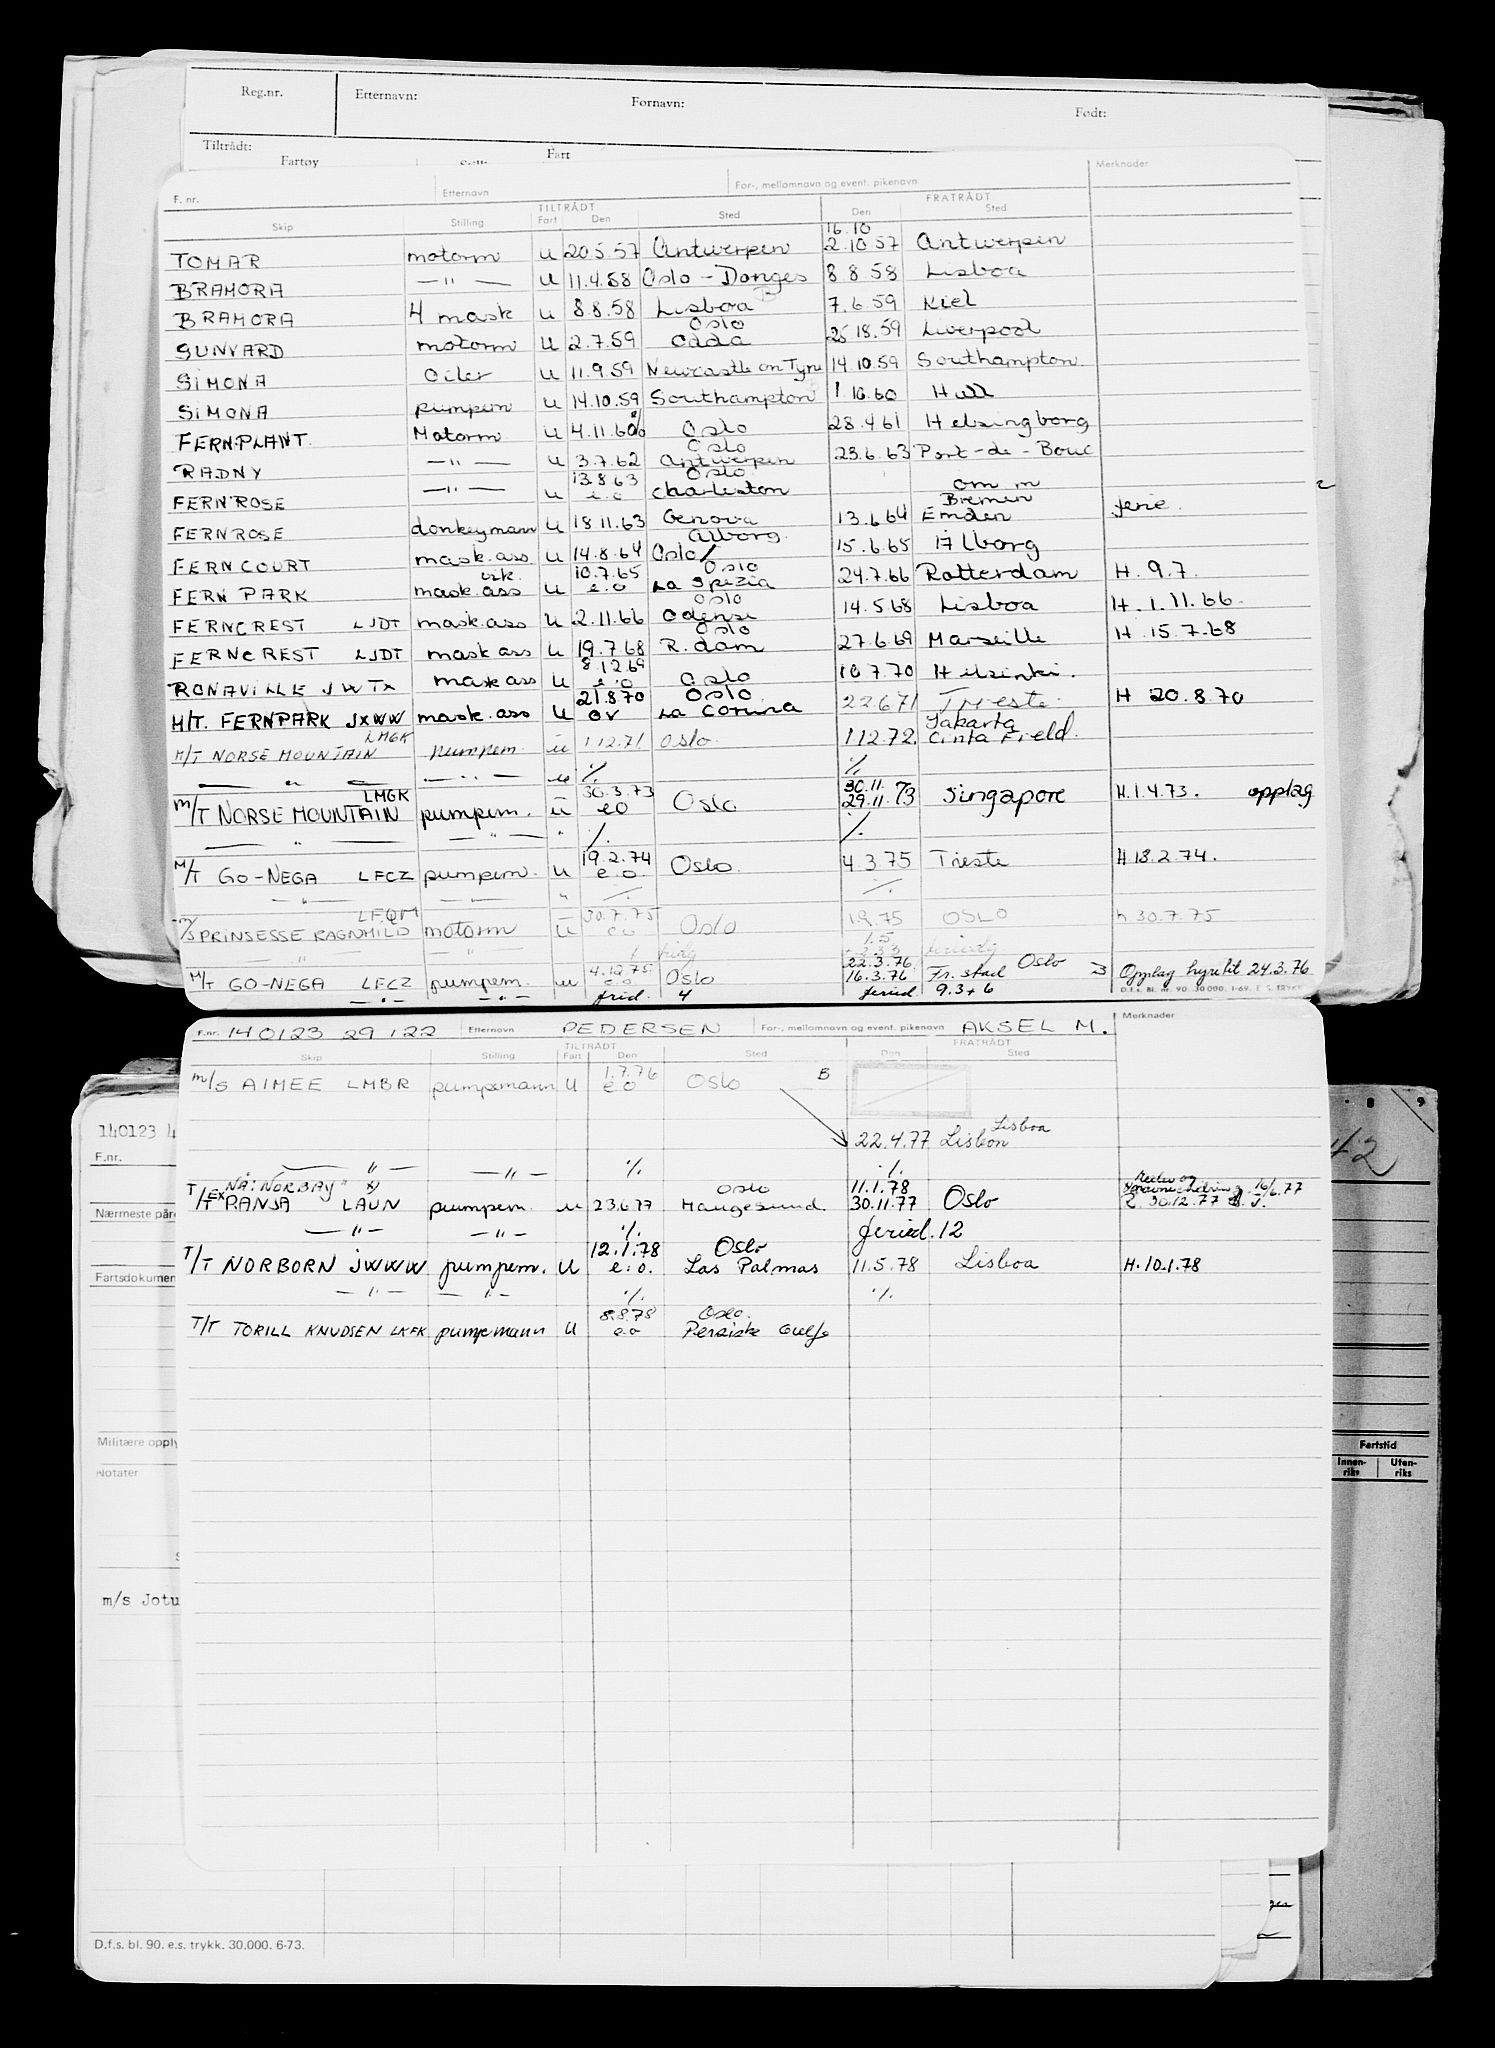 Reg.nr. Etternavn: Fornavn: Født:
Tiltrådt:
Fartøy Fart
Merknader
F. nr. Etternavn For-, mellomnavn og event. pikenavn
TILTRÅDT FRATRÅDT
Skip Stilling Fart Den Sted Den Sted
16.10
TOMAR motorm u 20.5.57 Antwerpen 2.10.57 Antwerpen
BRAMORA —"— u 11.4.58 Oslo - Donges 8.8.58 Lisboa
BRAMORA 4 mask u 8.8.58 Lisboa 7.6.59 Kiel
Oslo
GUNVARD motorm u 2.7.59 Odda 25 18.59 Liverpool
SIMONA Oiler u 11.9.59 Newcastle on Tyne 14.10.59 Southampton
SIMONA pumpem u 14.10.59 Southampton 1 10.60 Hull
FERNPLANT. Motorm. u 4.11.60 Oslo 28.4.61 Helsingborg
Oslo
RADNY —"— u 3.7.62 Antwerpen 23.6.63 Port-de-Bouc
13.8.63 Oslo om m
FERNROSE —"— u e.o Charleston Bremen
FERNROSE donkeymann u 18.11.63 Genova 13.6.64 Emden ferie.
Ålborg.
FERNCOURT mask.ass u 14.8.64 Oslo/ 15.6.65 Ålborg
10.7.65 Oslo
FERN PARK mask.ass u e.o La Spezia 24.7.66 Rotterdam H. 9.7.
Oslo
FERNCREST LJDT mask.ass u 2.11.66 Odense 14.5.68 Lisboa H. 1.11.66.
Oslo
FERNCREST LJDT mask ass u 19.7.68 R.dam 27.6.69 Marseille H. 15.7.68
8.12.69
RONAVILLE JWTX mask ass u e.o Oslo 10.7.70 Helsinki.
21.8.70 Oslo
M/T. FERNPARK JXWW mask.ass u ov La Coruna 22.6.71 Trieste. H 20.8.70
LMGK Jakarta
M/T NORSE MOUNTAIN pumpem. u 1.12.71 Oslo. 1.12.72. Cinta Field.
— " — — " — u ./. ./.
LMGK 30.3.73 30.11.
M/T NORSE MOUNTAIN pumpem. u eo Oslo 29.11.73 Singapore H. 1.4.73. opplag
— " — — " — " ./. ./.
19.2.74
M/T GO-NEGA LFCZ pumpem. u e.o. Oslo. 4.3.75 Trieste H 18.2.74.
— " — — " — " ./. ./.
LFQM 30.7.75
M/S PRINSESSE RAGNHILD motorm u e.o Oslo 1.9.75 OSLO h 30.7.75
— " — — " —
4.12.75. 22.3.76 Oslo
M/T GO-NEGA LFCZ pumpem. u e.o Oslo 16.3.76 Fr.stad Opplag hyre til 24.3.76
— " — — " — frid. 4 feried 9.3+6
D.f.s. Bl. nr. 90. 30 000. 1-69. E. S. TRYKK
F.nr. 140123 29122 Etternavn PEDERSEN For-, mellomnavn og event. pikenavn AKSEL M. Merknader
TILTRÅDT FRATRÅDT
Skip Stilling Fart Den Sted Den Sted
1.7.76
m/s AIMEE LMBR pumpemann u e o Oslo B
Lisboa
22.4.77 Lisbon
— " — — " — ./. ./.
NÅ: "NORBAY" x) Oslo 11.1.78 16/6.77
T/T EX RANJA LAUN pumpem. u 23.6.77 Haugesund. 30.11.77 Oslo 30.12.77
— " — — " — ./. feried. 12
12.1.78 Oslo
T/T NORBORN JWWW pumpem. u e.o. Las Palmas 11.5.78 Lisboa H. 10.1.78
— " — — " — ./. ./.
8.8.78 Oslo.
T/T TORILL KNUDSEN LKFK pumpemann u e.o Persiske Gulf
140123 4
F.nr.
Nærmeste pår
Fartsdokumen
Militære opply
Notater
m/s Jotu
Fartstid
Innen-riks Uten-riks
42
8 9
D.f.s. bl. 90. e.s. trykk. 30.000. 6-73.